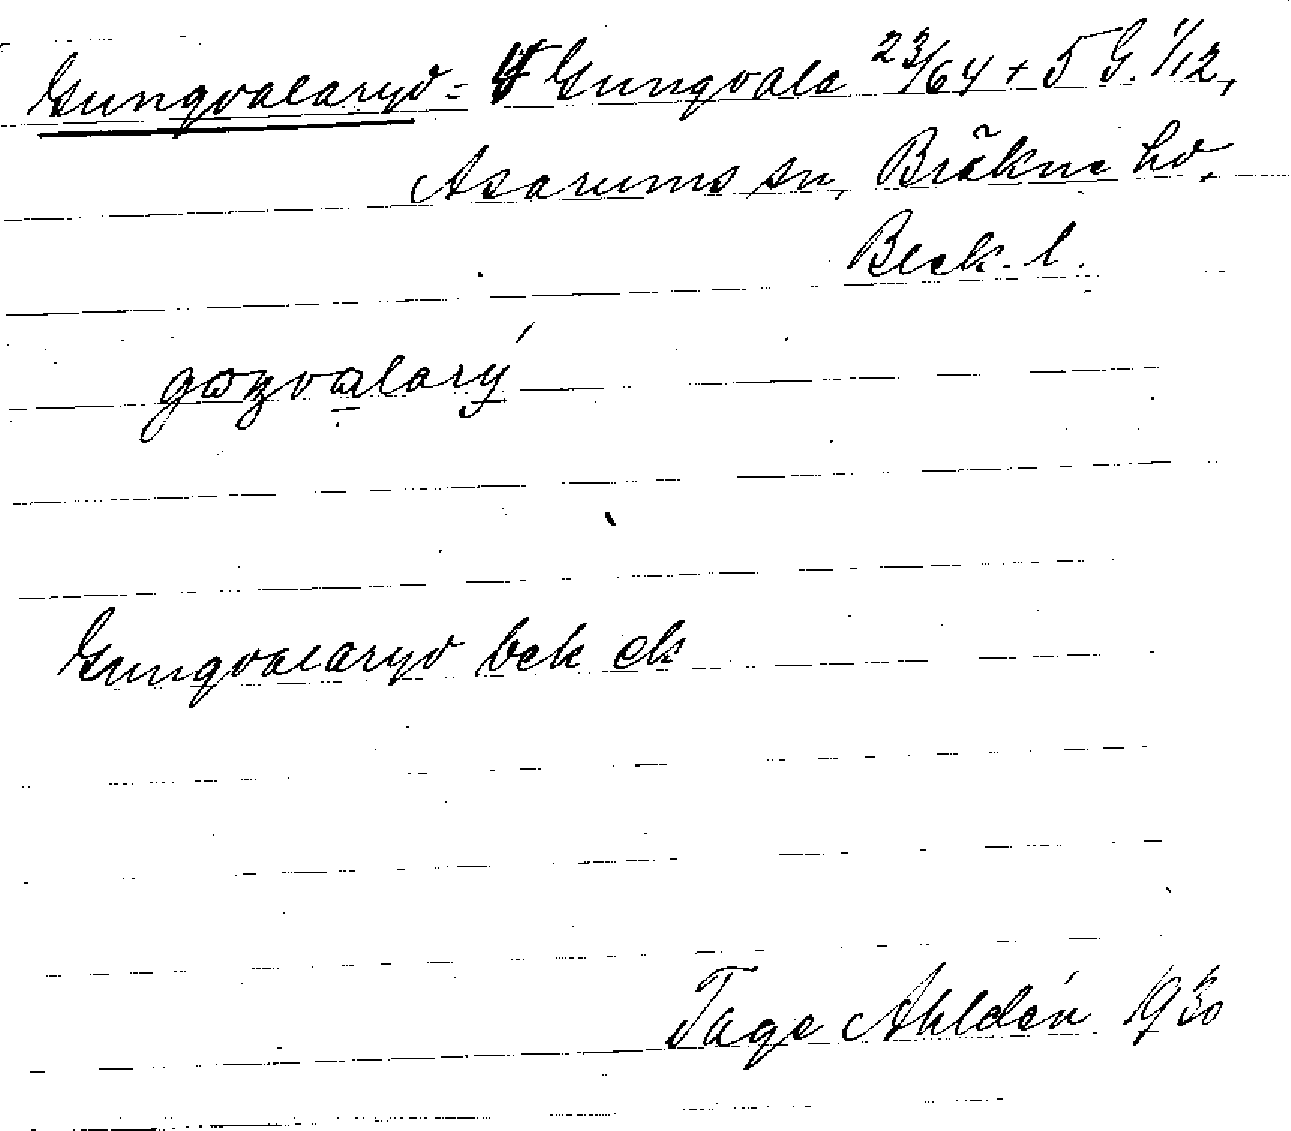 Gungvalaryd = 4 Gungvala 23/64 + 5 G. 1/12,
Asarums sn, Bräkne hd.
Bleck. l.
gɷŋvalarý
Gungvalaryd bek ek
Tage Ahldén 1930